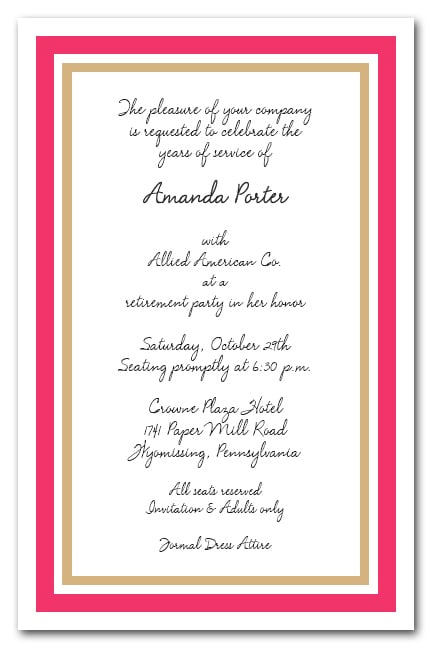 The pleasure of your company
is requested to celebrate the
years of service of
Amanda Porter
with
Allied American Co.
at a
retirement party in her honor
Saturday, October 29th
Seating promptly at 6:30 p.m.
Crowne Plaza Hotel
1741 Paper Mill Road
Wyomissing, Pennsylvania
All seats reserved
Invitation & Adults only
Formal Dress Attire